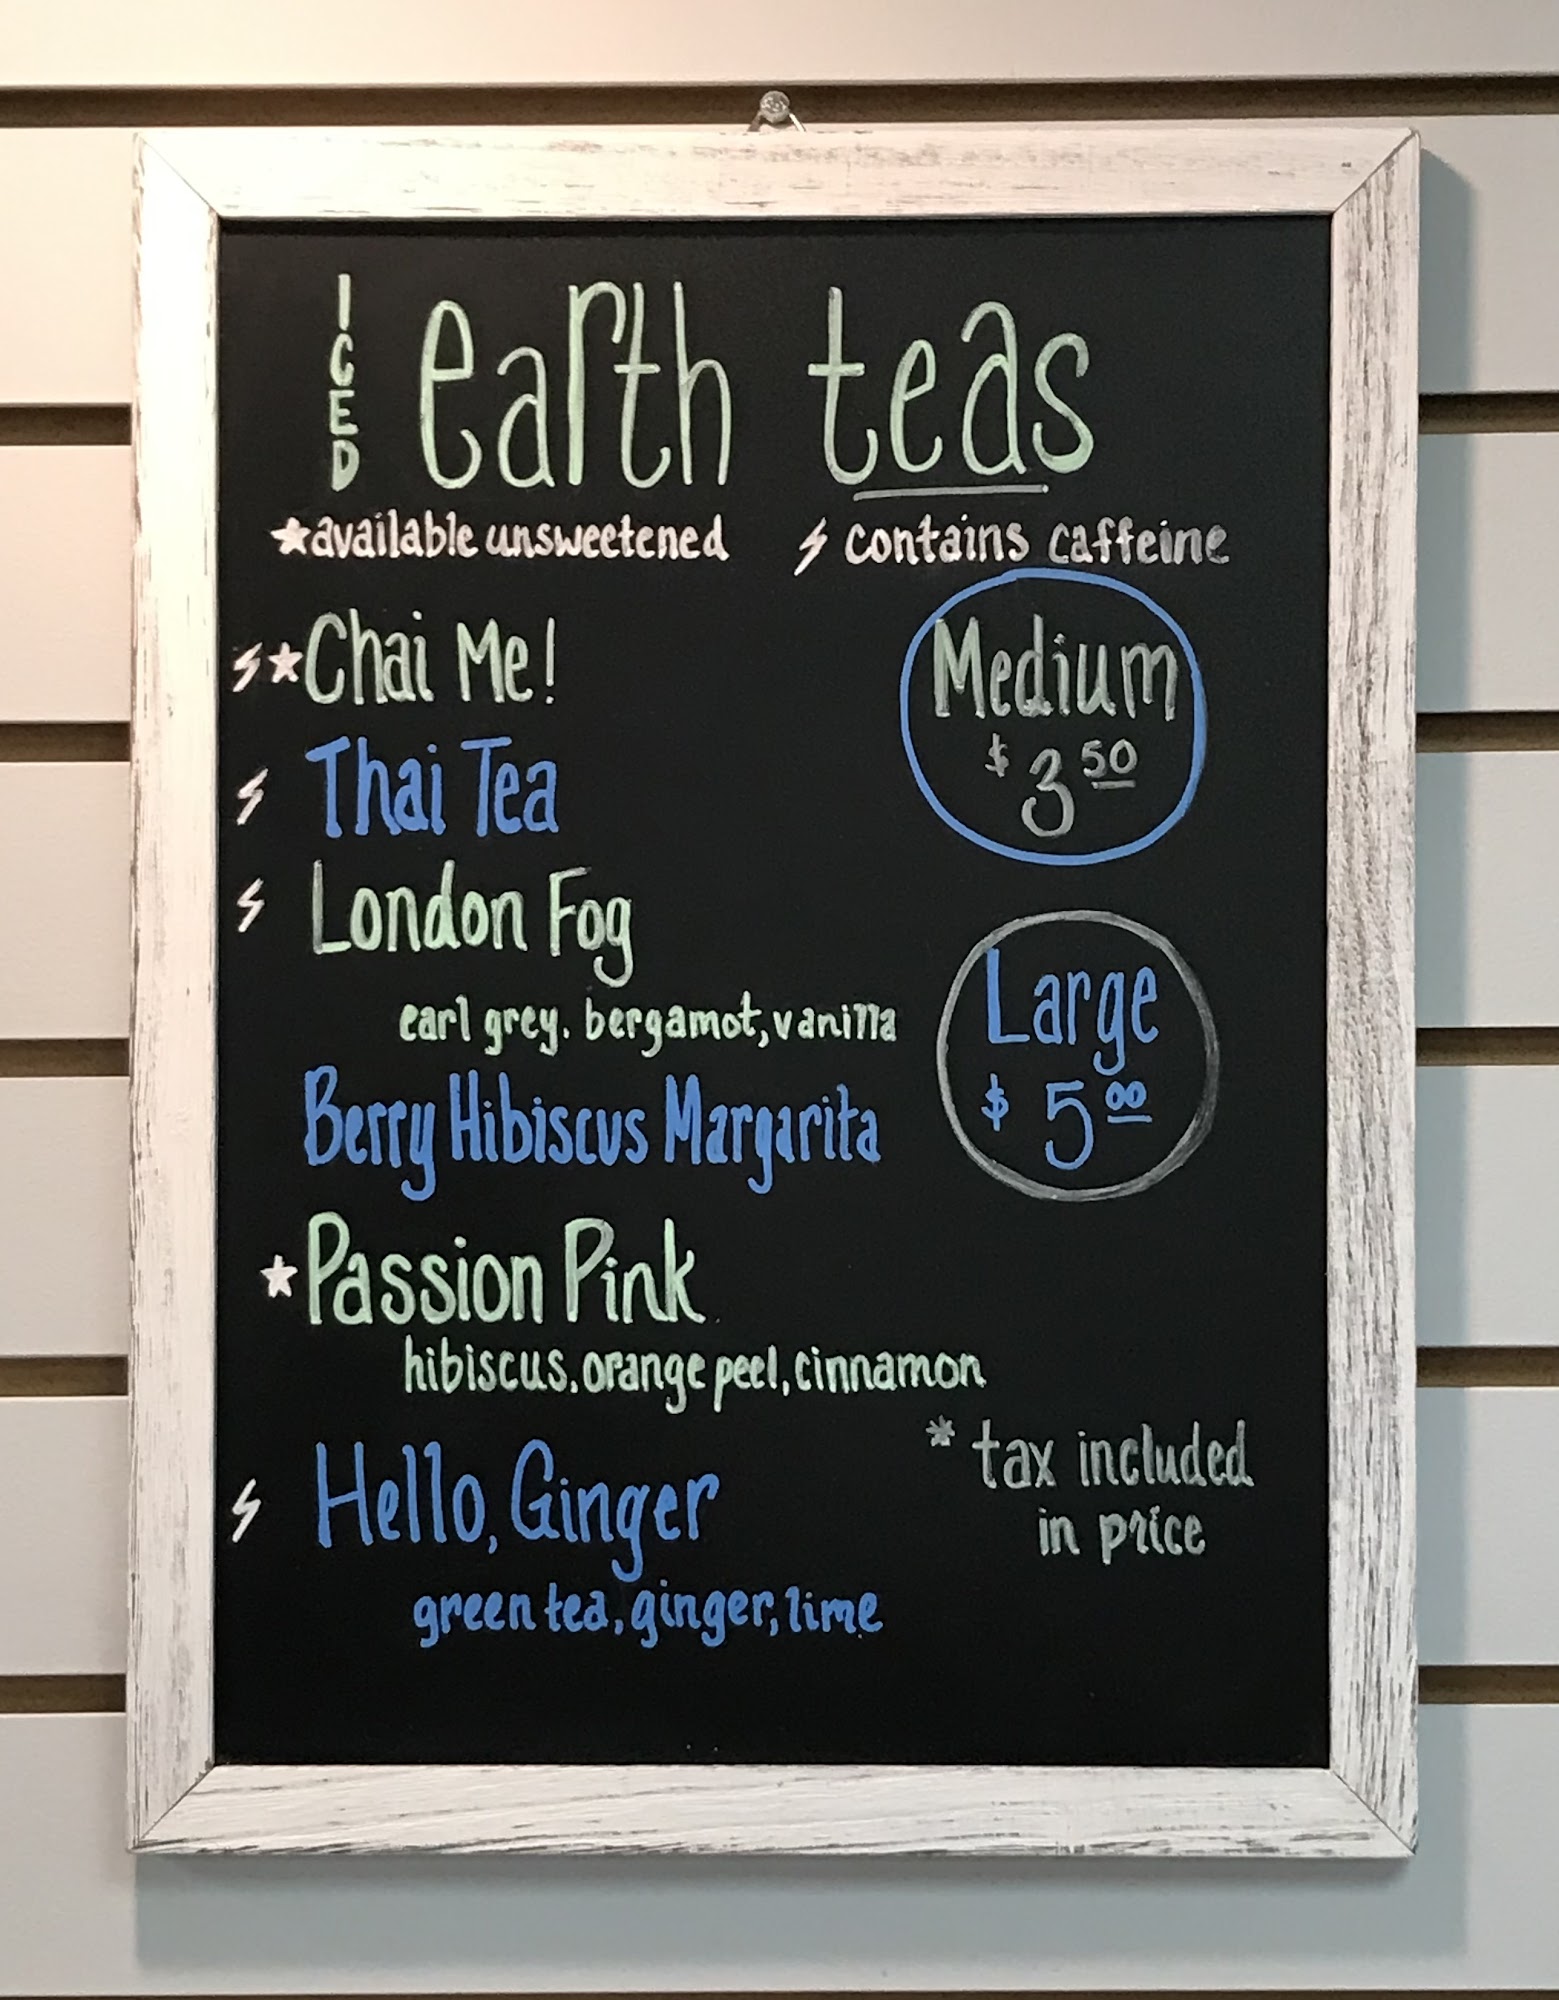 ICED earth teas
★available unsweetened ⚡ contains caffeine
⚡★Chai Me!
⚡ Thai Tea
⚡ London Fog
earl grey. bergamot, vanilla
Berry Hibiscus Margarita
★Passion Pink
hibiscus. orange peel, cinnamon
⚡ Hello, Ginger
green tea, ginger, lime
Medium
$ 3 50
Large
$ 5 00
* tax included
in price